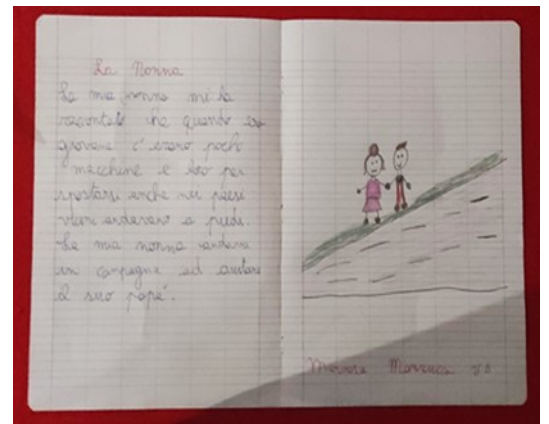 La Nonna
La mia nonna mi ha
raccontato che quando era
giovane c'erano poche
macchine e loro per
spostarsi anche nei paesi
vicini andavano a piedi.
La mia nonna andava
in campagna ad aiutare
il suo papà.